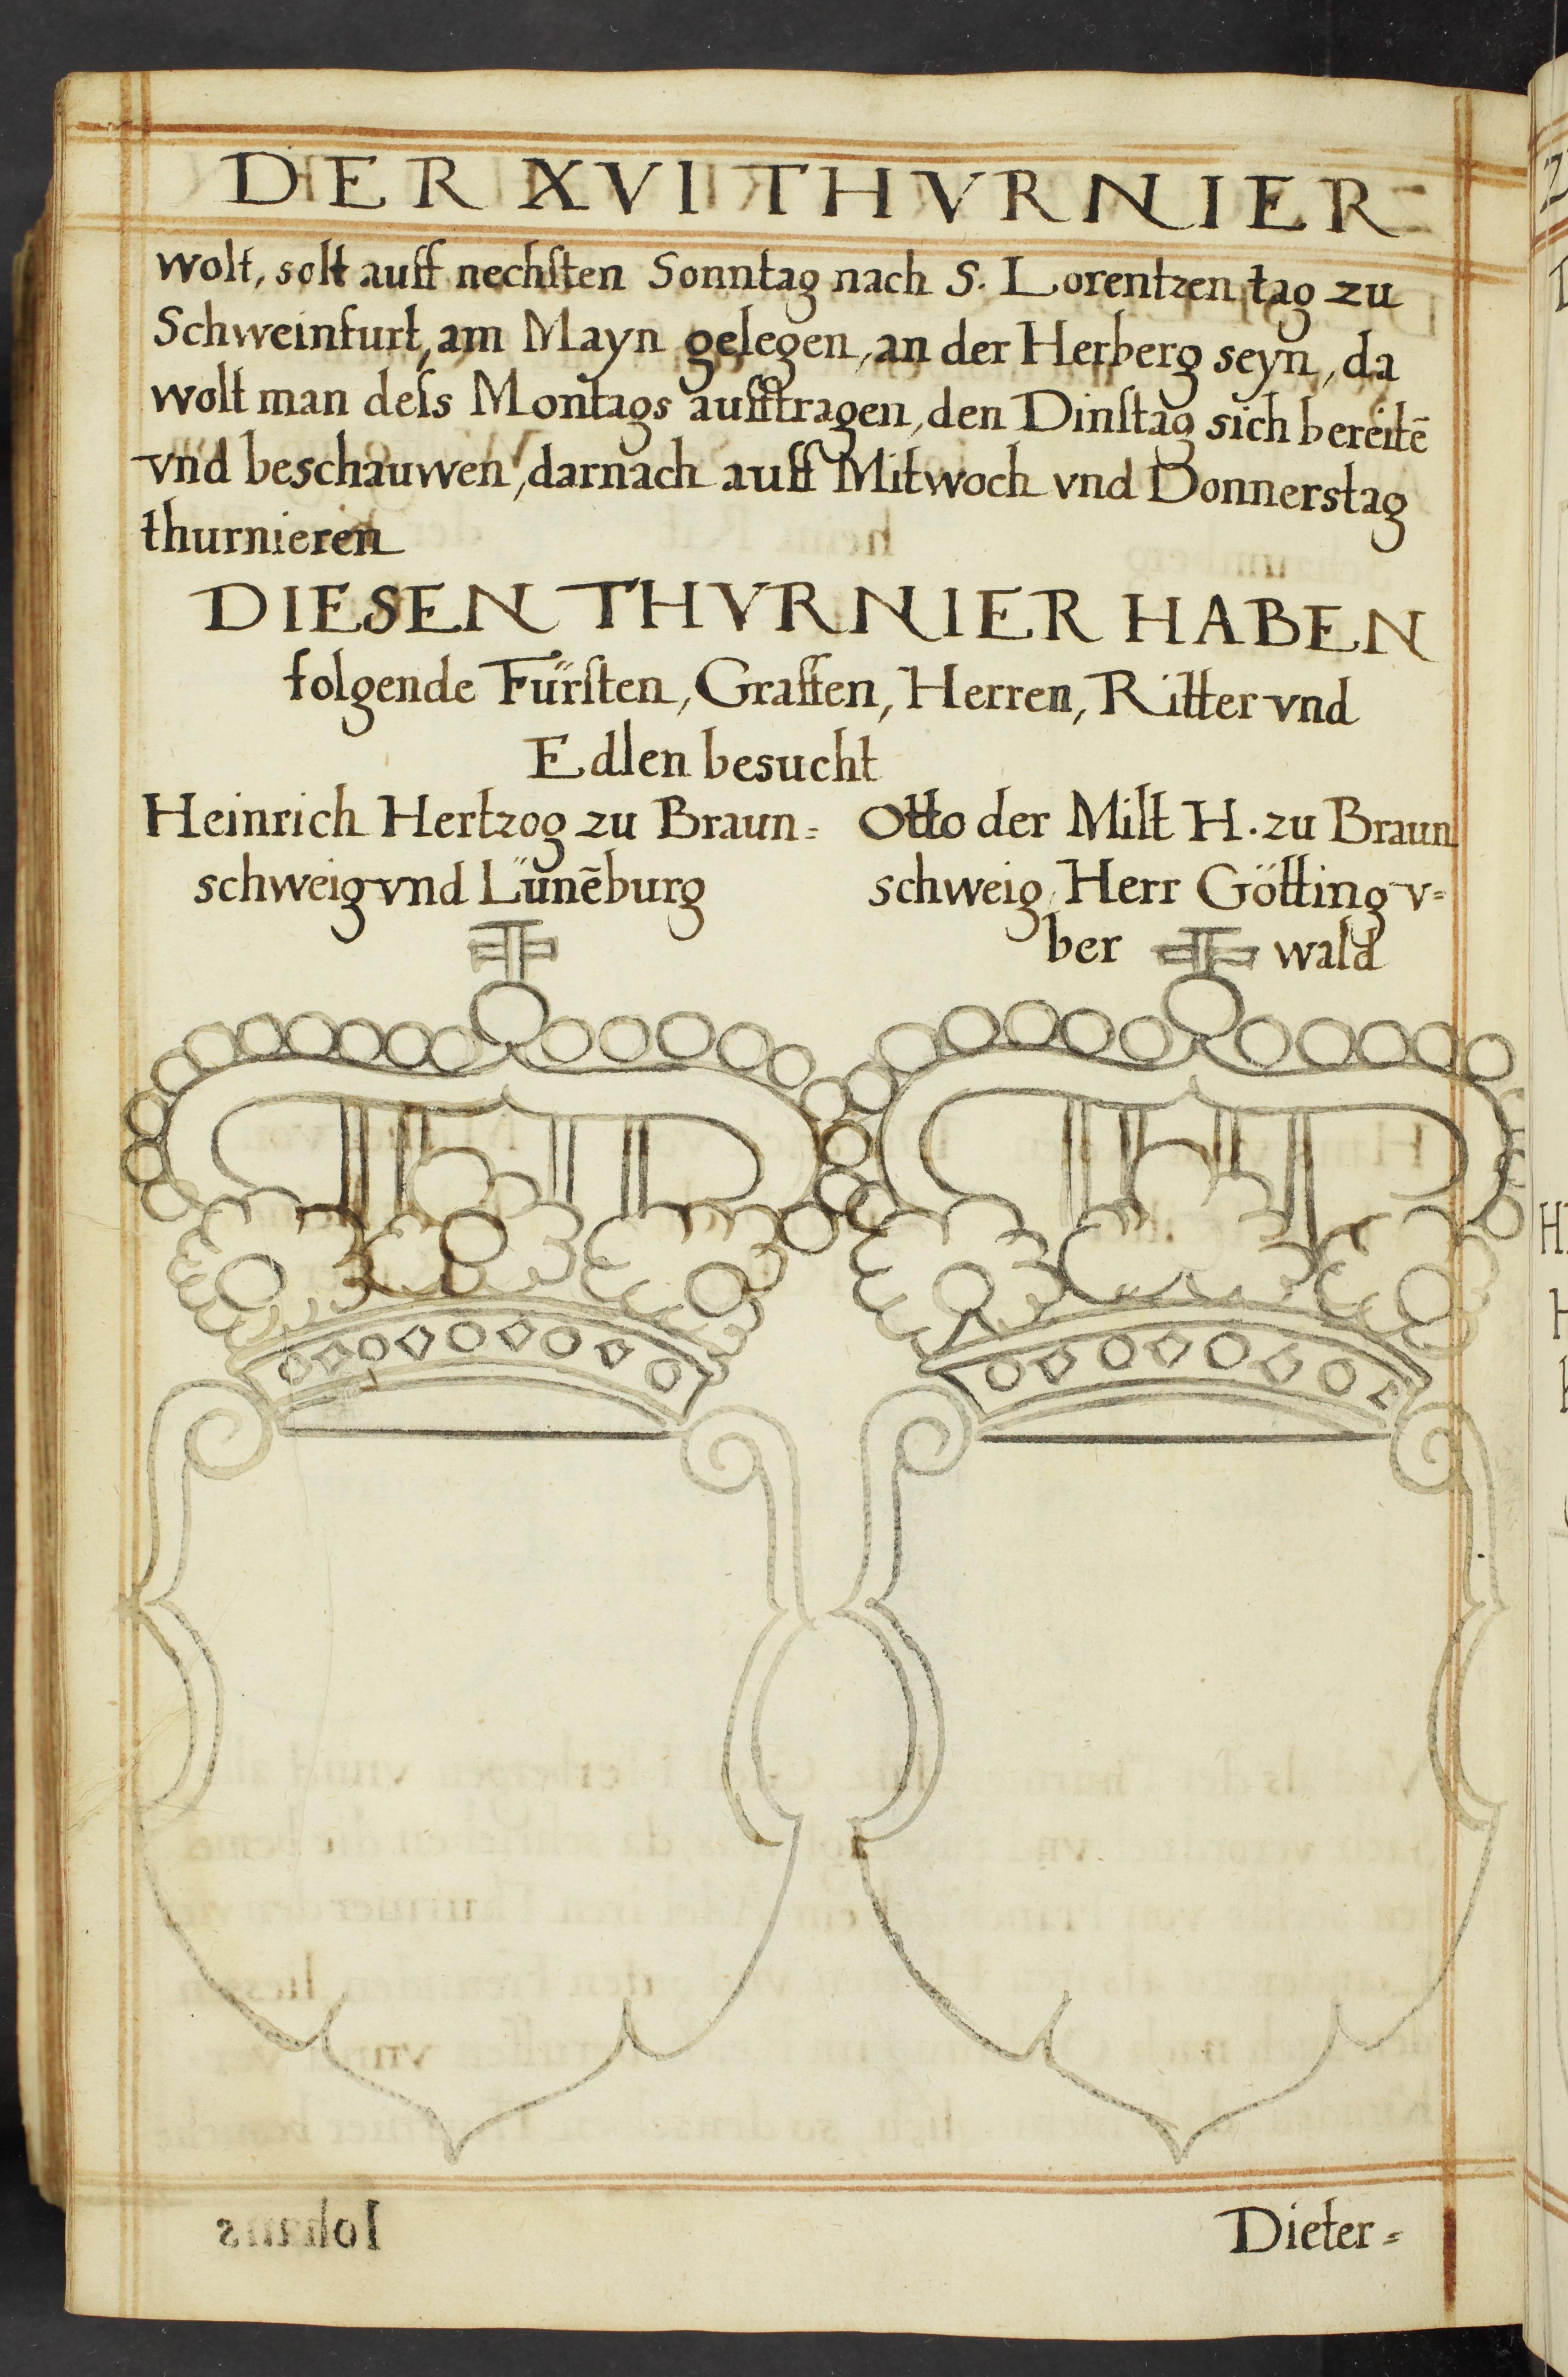 DER XVI THVRNIER=
wolt, solt auff nechſten Sonntag nach S. Lorentzen tag zu
Schweinfurt, am Mayn gelegen, an der Herberg seyn, da
wolt man deſs Montags aufftragen, den Dinſtag sich bereitē
vnd beschauwen, darnach auff Mitwoch vnd Donnerstag
thurnieren
DIESEN THVRNIER HABEN
folgende Fürſten, Graffen, Herren, Ritter vnd
Edlen besucht
Heinrich Hertzog zu Braun=
schweig vnd Lünēburg
Otto der Milt H. zu Braun
schweig, Herr Götting v=
ber wald
Dieter=